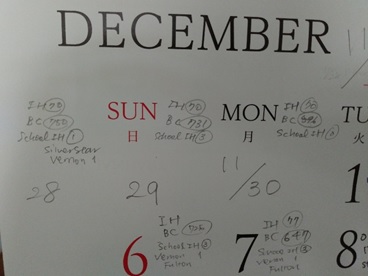 DECEMBER
11
IH 70
BC 750
School IH 1
Silverstar
Vernon 1
28
SUN
日
IH 70
BC 731
School IH 3
29
MON
月
IH
BC
School IH
11/30
TU
火
1
6
IH
BC
School IH
Vernon 1
Fulton
7
IH 77
BC 647
Vernon 1
Fulton
8